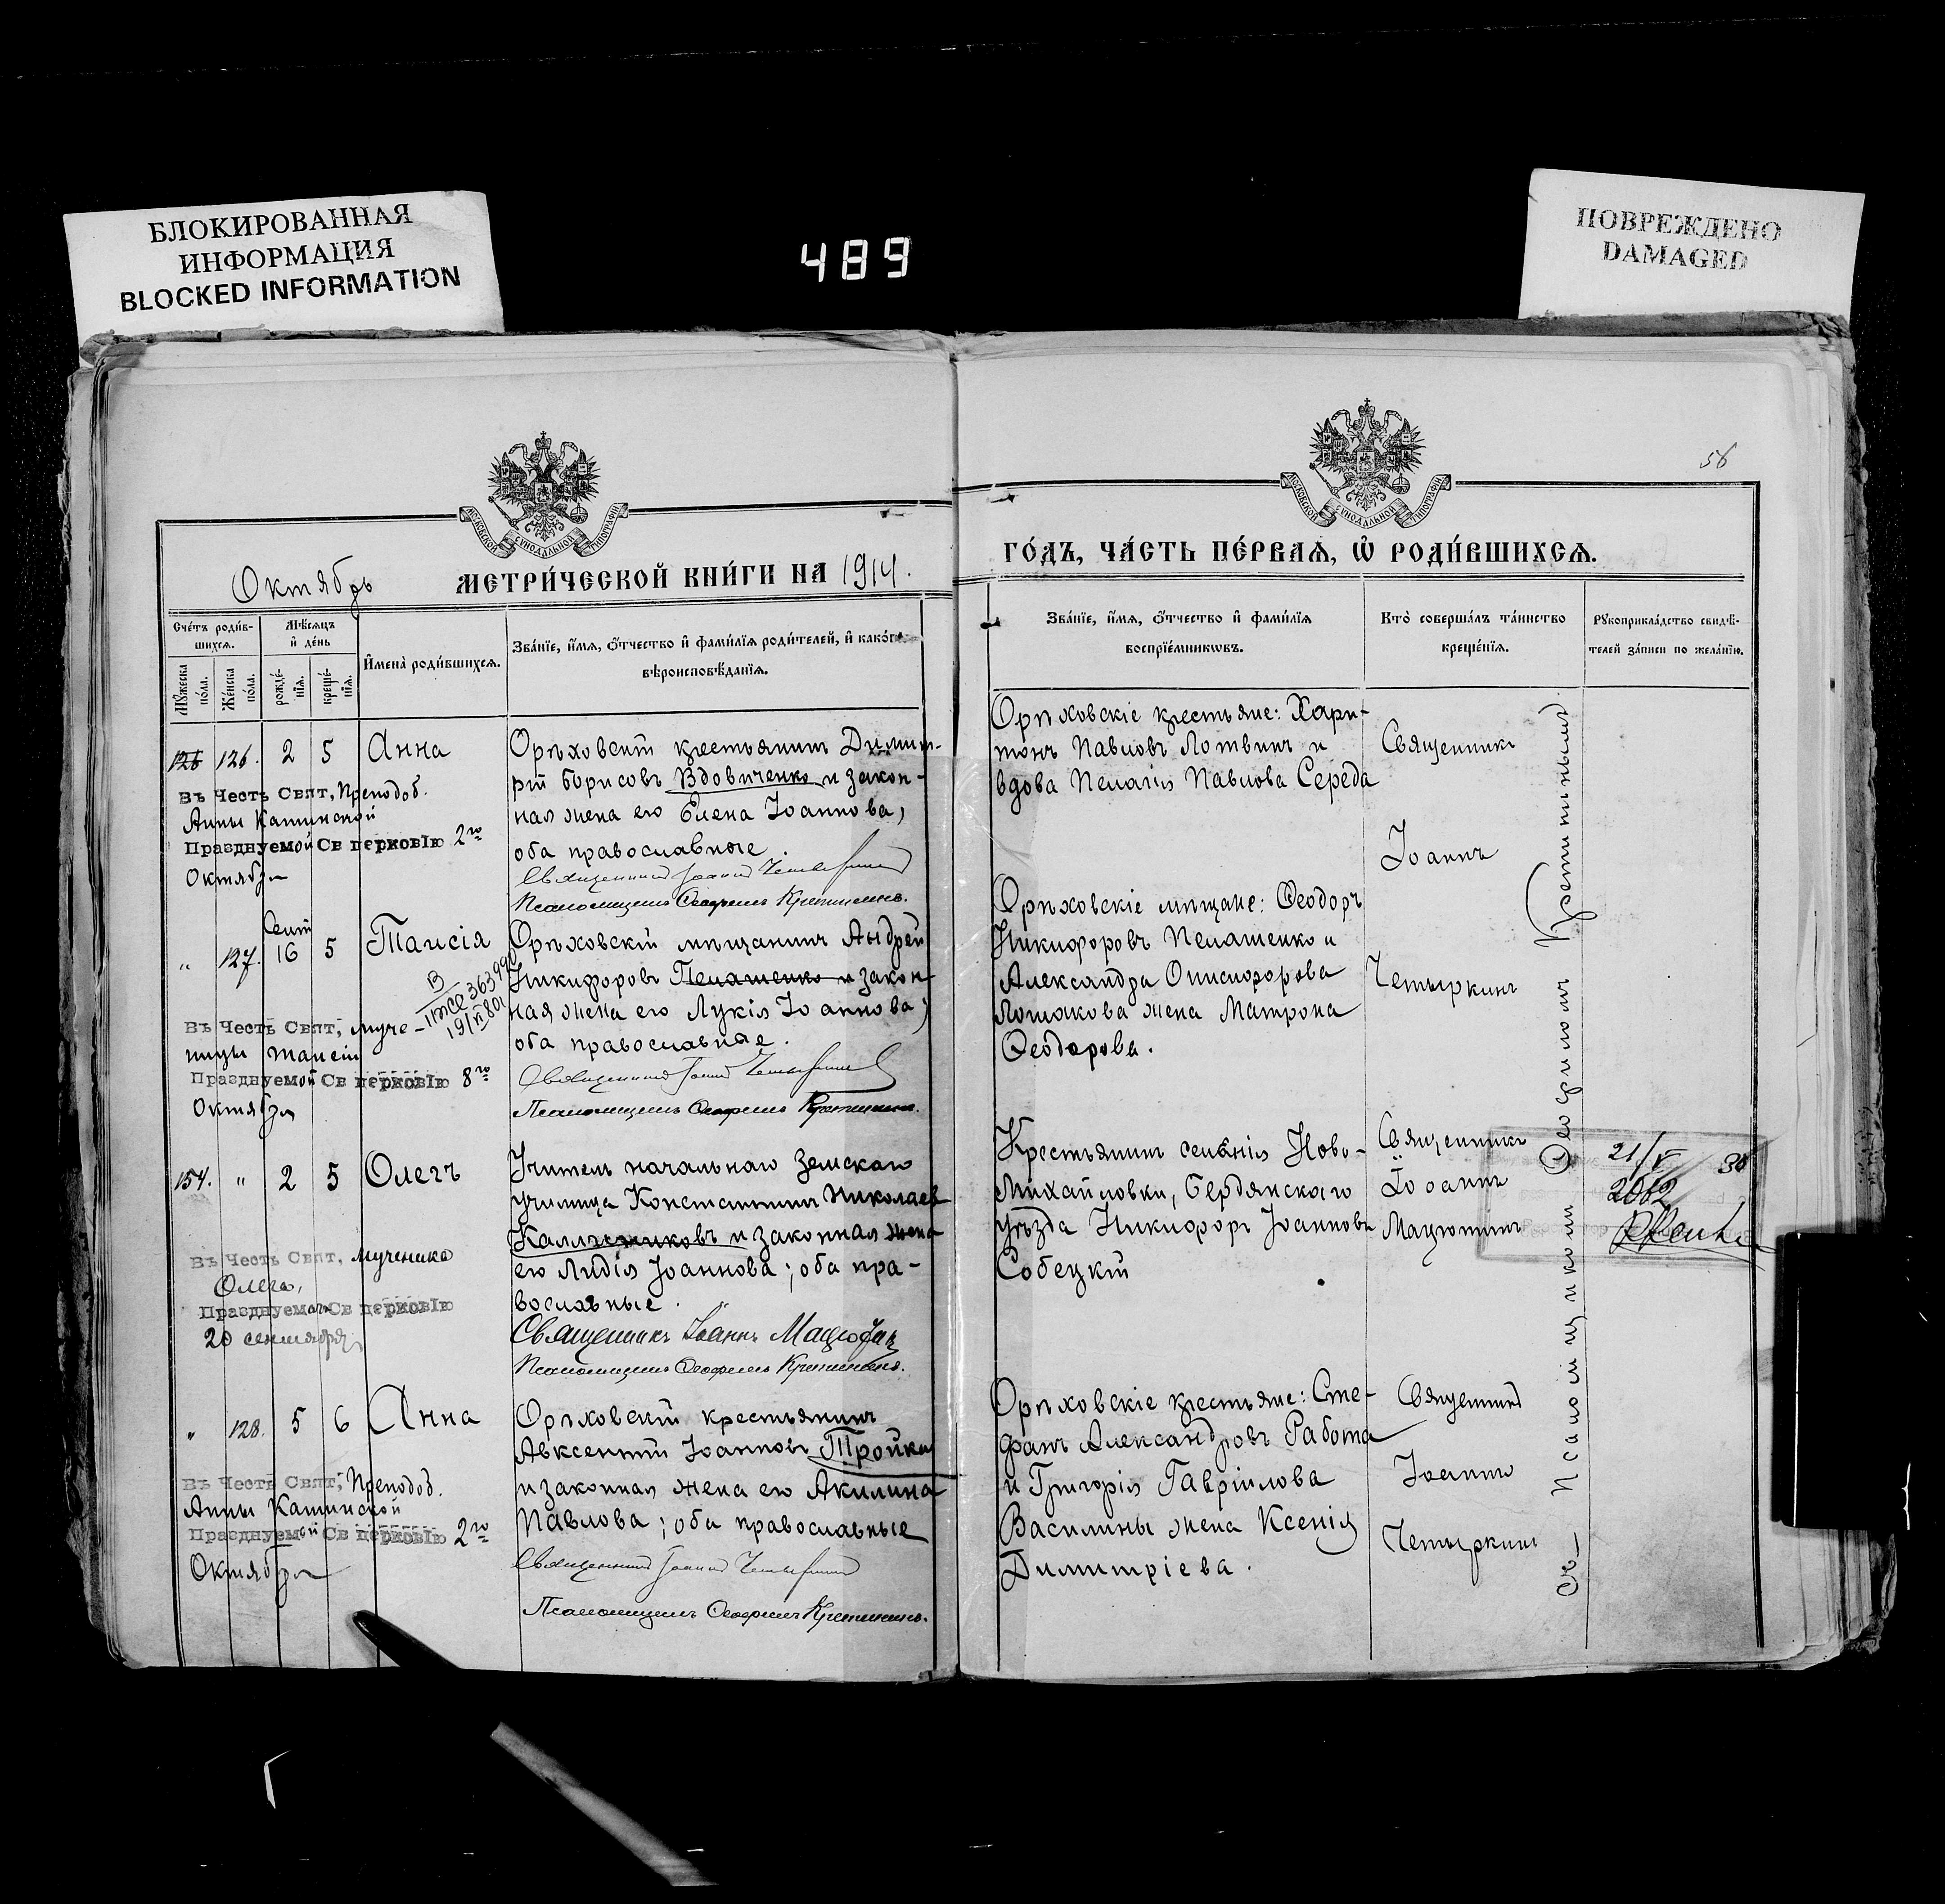 БЛОКИРОВАННАЯ
ИНФОРМАЦИЯ
BLOCKED INFORMATION
489
ПОВРЕЖДЕНО
DAMAGED
56
МОСКОВСКОЙ СѴНОДАЛЬНОЙ ТИПОГРАФІИ
МОСКОВСКОЙ СѴНОДАЛЬНОЙ ТИПОГРАФІИ
Октябрь МЕТРИ́ЧЕСКОЙ КНИ́ГИ НА 1914.
ГО́ДЪ, ЧА́СТЬ ПЕ́РВАѦ, Ѡ҆ РОДИ́ВШИХСѦ.
Сче́тъ роди́в-
шихсѧ.
Мѣ́сѧцъ
и҆ де́нь
Мꙋ́жеска
по́ла.
Же́нска
по́ла.
рожде́-
нїѧ.
креще́-
нїѧ.
И҆мена̀ роди́вшихсѧ.
Зва́нїе, и҆́мѧ, ѻ҆́тчество и҆ фами́лїѧ роди́телей, и҆ како́гѡ
вѣроисповѣ́данїѧ.
Зва́нїе, и҆́мѧ, ѻ҆́тчество и҆ фами́лїѧ
воспрїе́мникѡвъ.
Кто̀ соверша́лъ та́инство
креще́нїѧ.
Рꙋкоприкла́дство свидѣ́-
телей за́писи по жела́нїю.
126 126. 2 5 Анна
Въ Честь Свят, Преподоб.
Анны Кашинской
Празднуемой Св церковію 2го
Октября
Орѣховскій крестьянинъ Димит-
рій Борисовъ Вдовиченко и закон-
ная жена его Елена Іоаннова,
оба православные.
Священникъ Іоаннъ Четыркинъ
Псаломщикъ Ѳеофилъ Кретининъ.
Орѣховскіе крестьяне: Хари-
тонъ Павловъ Лотвинъ и
вдова Пелагія Павлова Середа
Священникъ
Іоаннъ
Четыркинъ
„ 127. Сент 16 5 Таисія
В
II ЖС 363990
19/II 80
Въ Честь Свят, муче-
ницы Таисіи
Празднуемой Св церковію 8го
Октября
Орѣховскій мѣщанинъ Андрей
Никифоровъ Пелашенко и закон-
ная жена его Лукія Іоаннова,
оба православные.
Священникъ Іоаннъ Четыркинъ
Псаломщикъ Ѳеофилъ Кретининъ.
Орѣховскіе мѣщане: Ѳеодоръ
Никифоровъ Пелашенко и
Александра Онисифорова
Ломакова жена Матрона
Ѳеодорова.
154. „ 2 5 Олегъ
Въ Честь Свят, мученика
Олега,
Празднуемаго Св церковію
20 сентября
Учитель начальнаго земскаго
училища Константинъ Николаев
Калмчетиковъ и законная жена
его Лидія Іоаннова; оба пра-
вославные.
Священникъ Іоаннъ Мацютинъ
Псаломщикъ Ѳеофилъ Кретининъ.
Крестьянинъ селенія Ново-
Михайловки, Бердянскаго
уѣзда Никифоръ Іоанновъ
Собецкій
Священникъ
Іоаннъ
Мацютинъ
21/V 38
2062
„ 128. 5 6 Анна
Въ Честь Свят, Преподоб.
Анны Кашинской
Празднуемой Св церковію 2го
Октября
Орѣховскій крестьянинъ
Авксентій Іоанновъ Тройка
и законная жена его Акилина
Павлова; оба православные
Священникъ Іоаннъ Четыркинъ
Псаломщикъ Ѳеофилъ Кретининъ.
Орѣховскіе крестьяне: Сте-
фанъ Александровъ Работа
и Григорія Гавріилова
Василины жена Ксенія
Димитріева.
Священникъ
Іоаннъ
Четыркинъ
съ Псаломщикомъ Ѳеофиломъ Кретининымъ.